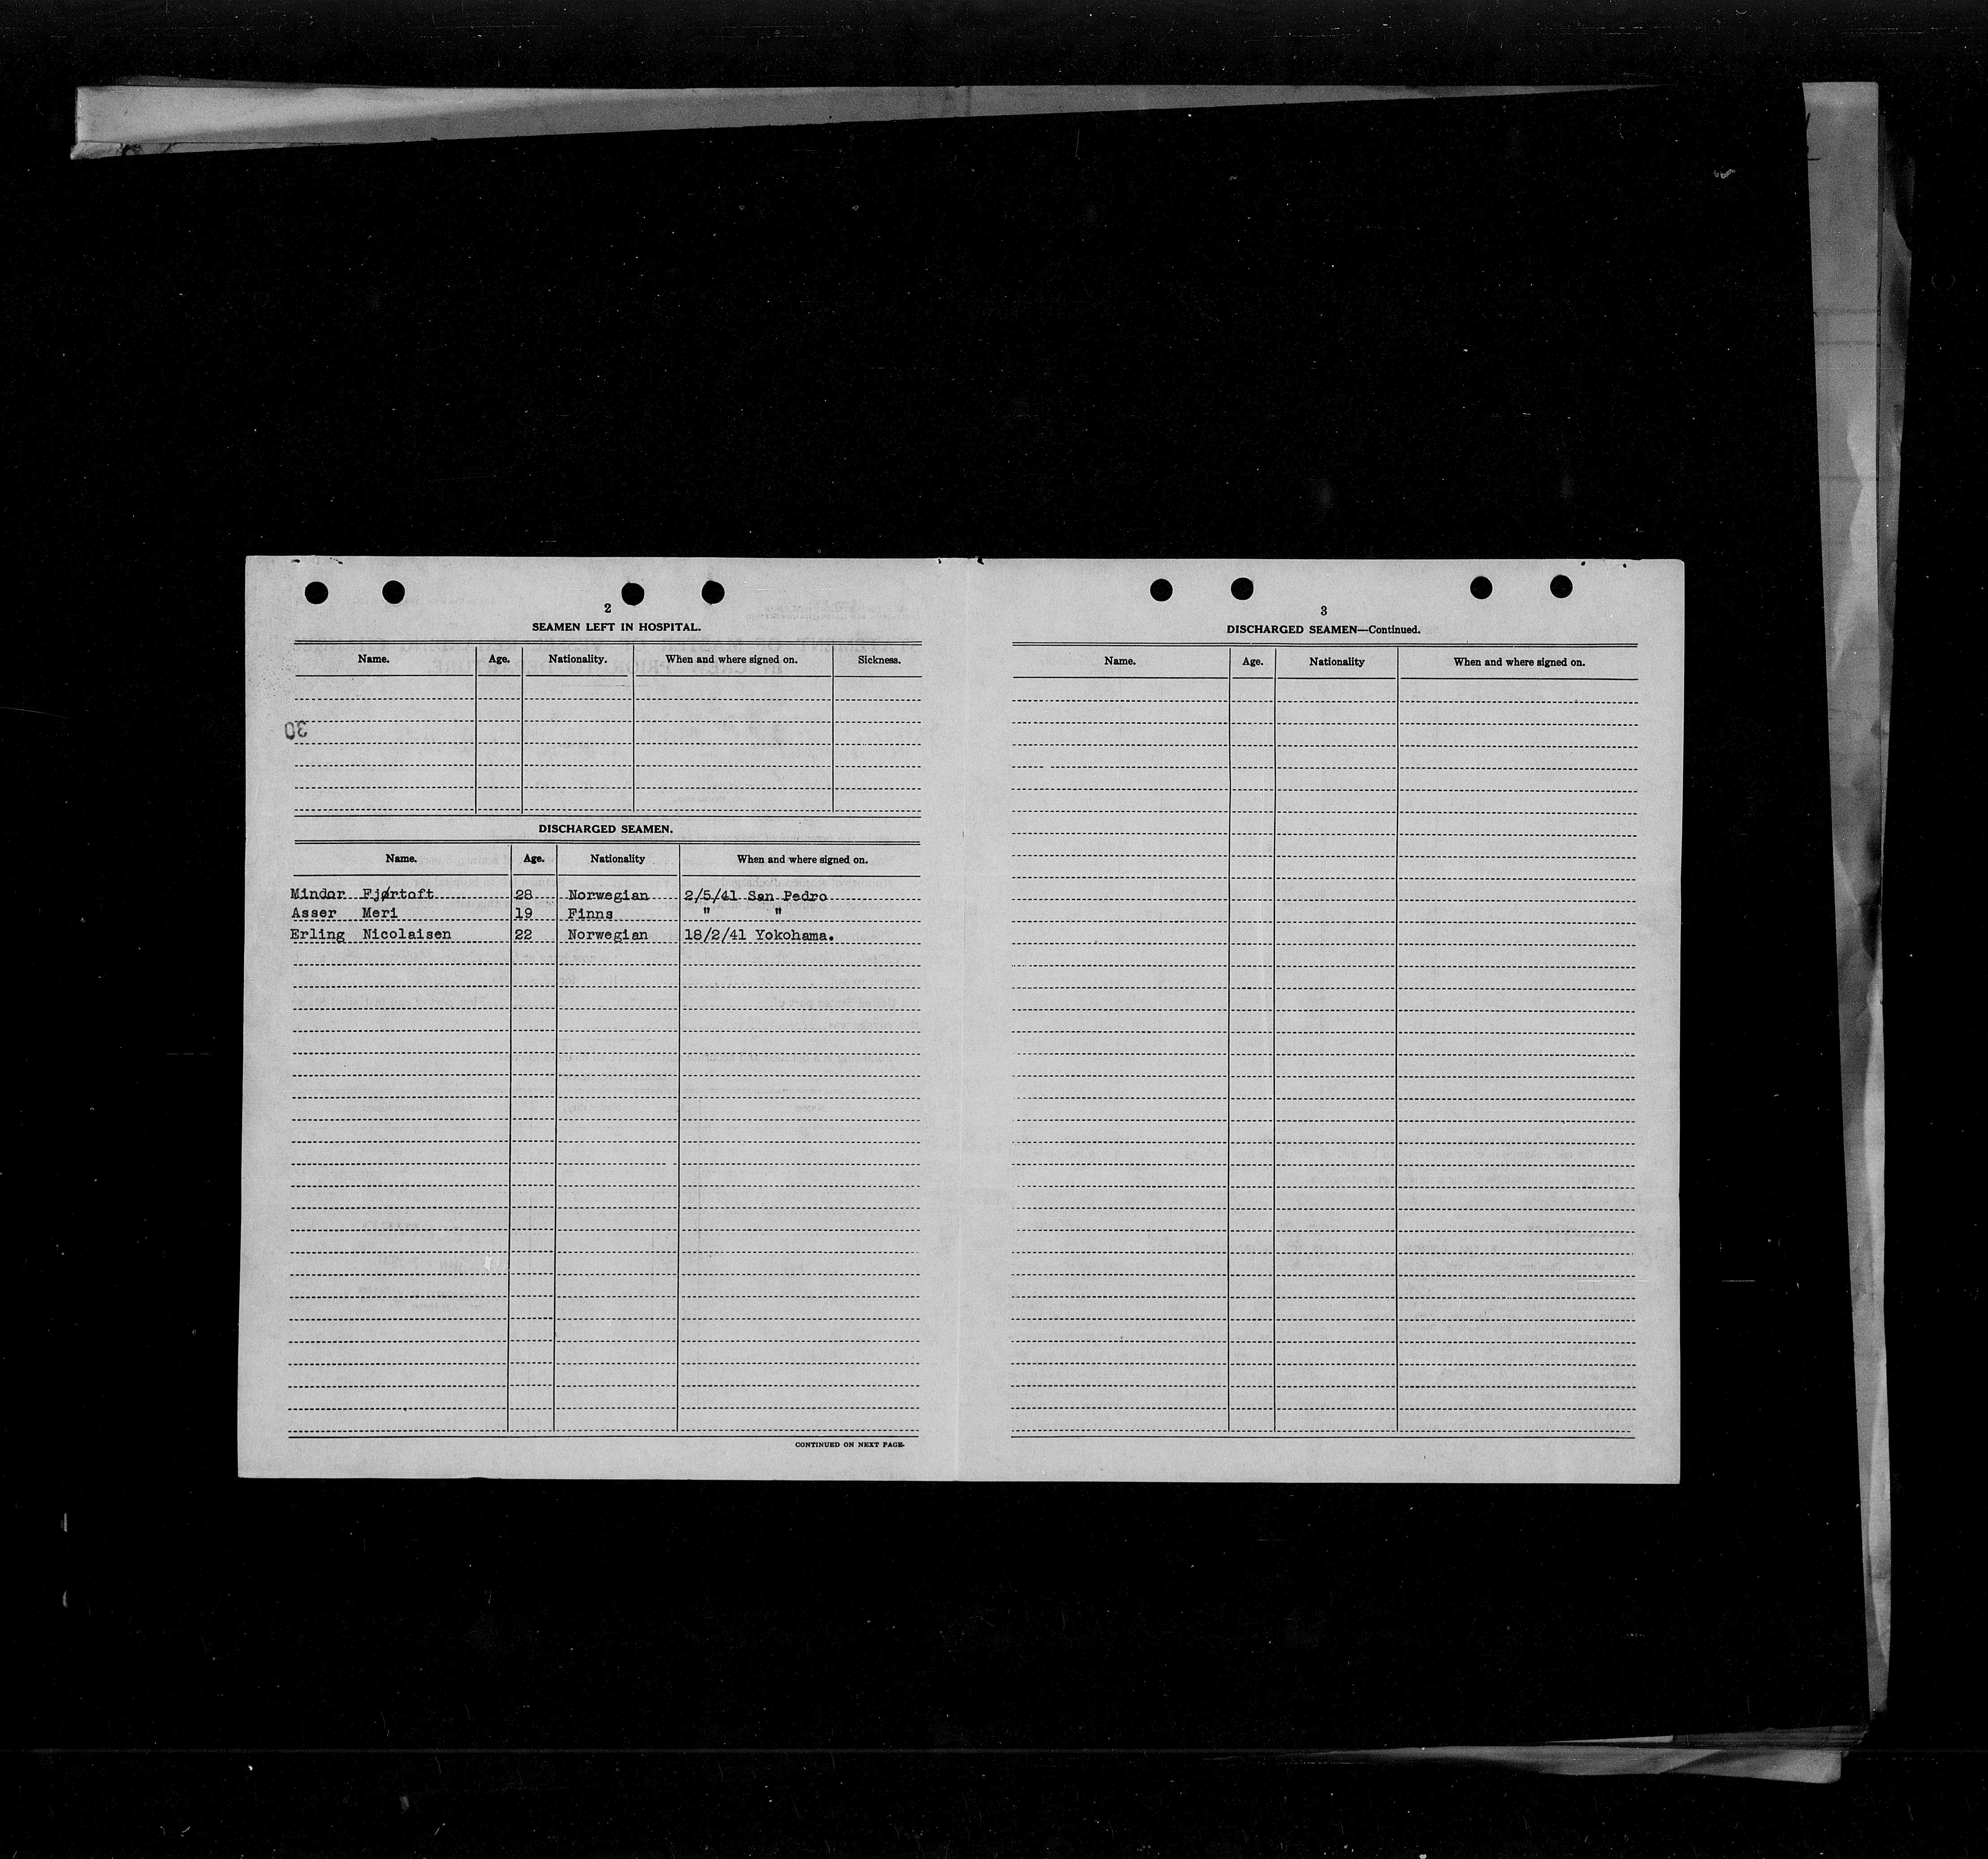 2
SEAMEN LEFT IN HOSPITAL.
Name. Age. Nationality. When and where signed on. Sickness.
30
DISCHARGED SEAMEN.
Name. Age. Nationality When and where signed on.
Mindor Fjørtoft 28 Norwegian 2/5/41 San Pedro
Asser Meri 19 Finns " "
Erling Nicolaisen 22 Norwegian 18/2/41 Yokohama.
CONTINUED ON NEXT PAGE.
3
DISCHARGED SEAMEN—Continued.
Name. Age. Nationality When and where signed on.